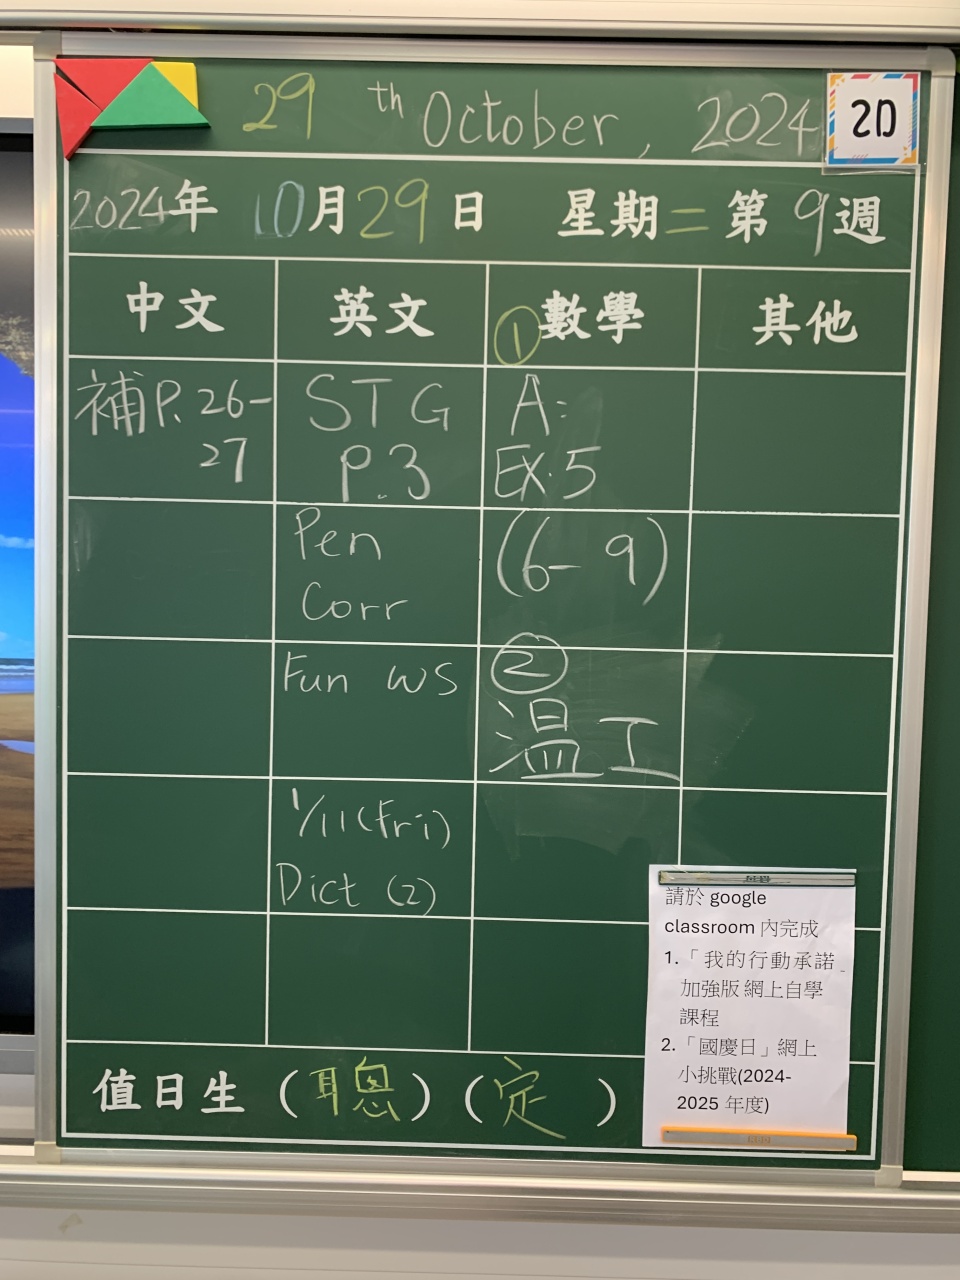 29th October, 2024
2D
2024年 10月29日 星期二 第9週
中文 英文 ①數學 其他
補P.26-
27
STG
P.3
A:
EX.5
Pen
Corr
(6-9)
Fun WS
②
溫工
1/11(Fri)
Dict (2)
請於 google
classroom 內完成
1.「我的行動承諾
加強版 網上自學
課程
2.「國慶日」網上
小挑戰(2024-
2025 年度)
值日生（聰）（定）